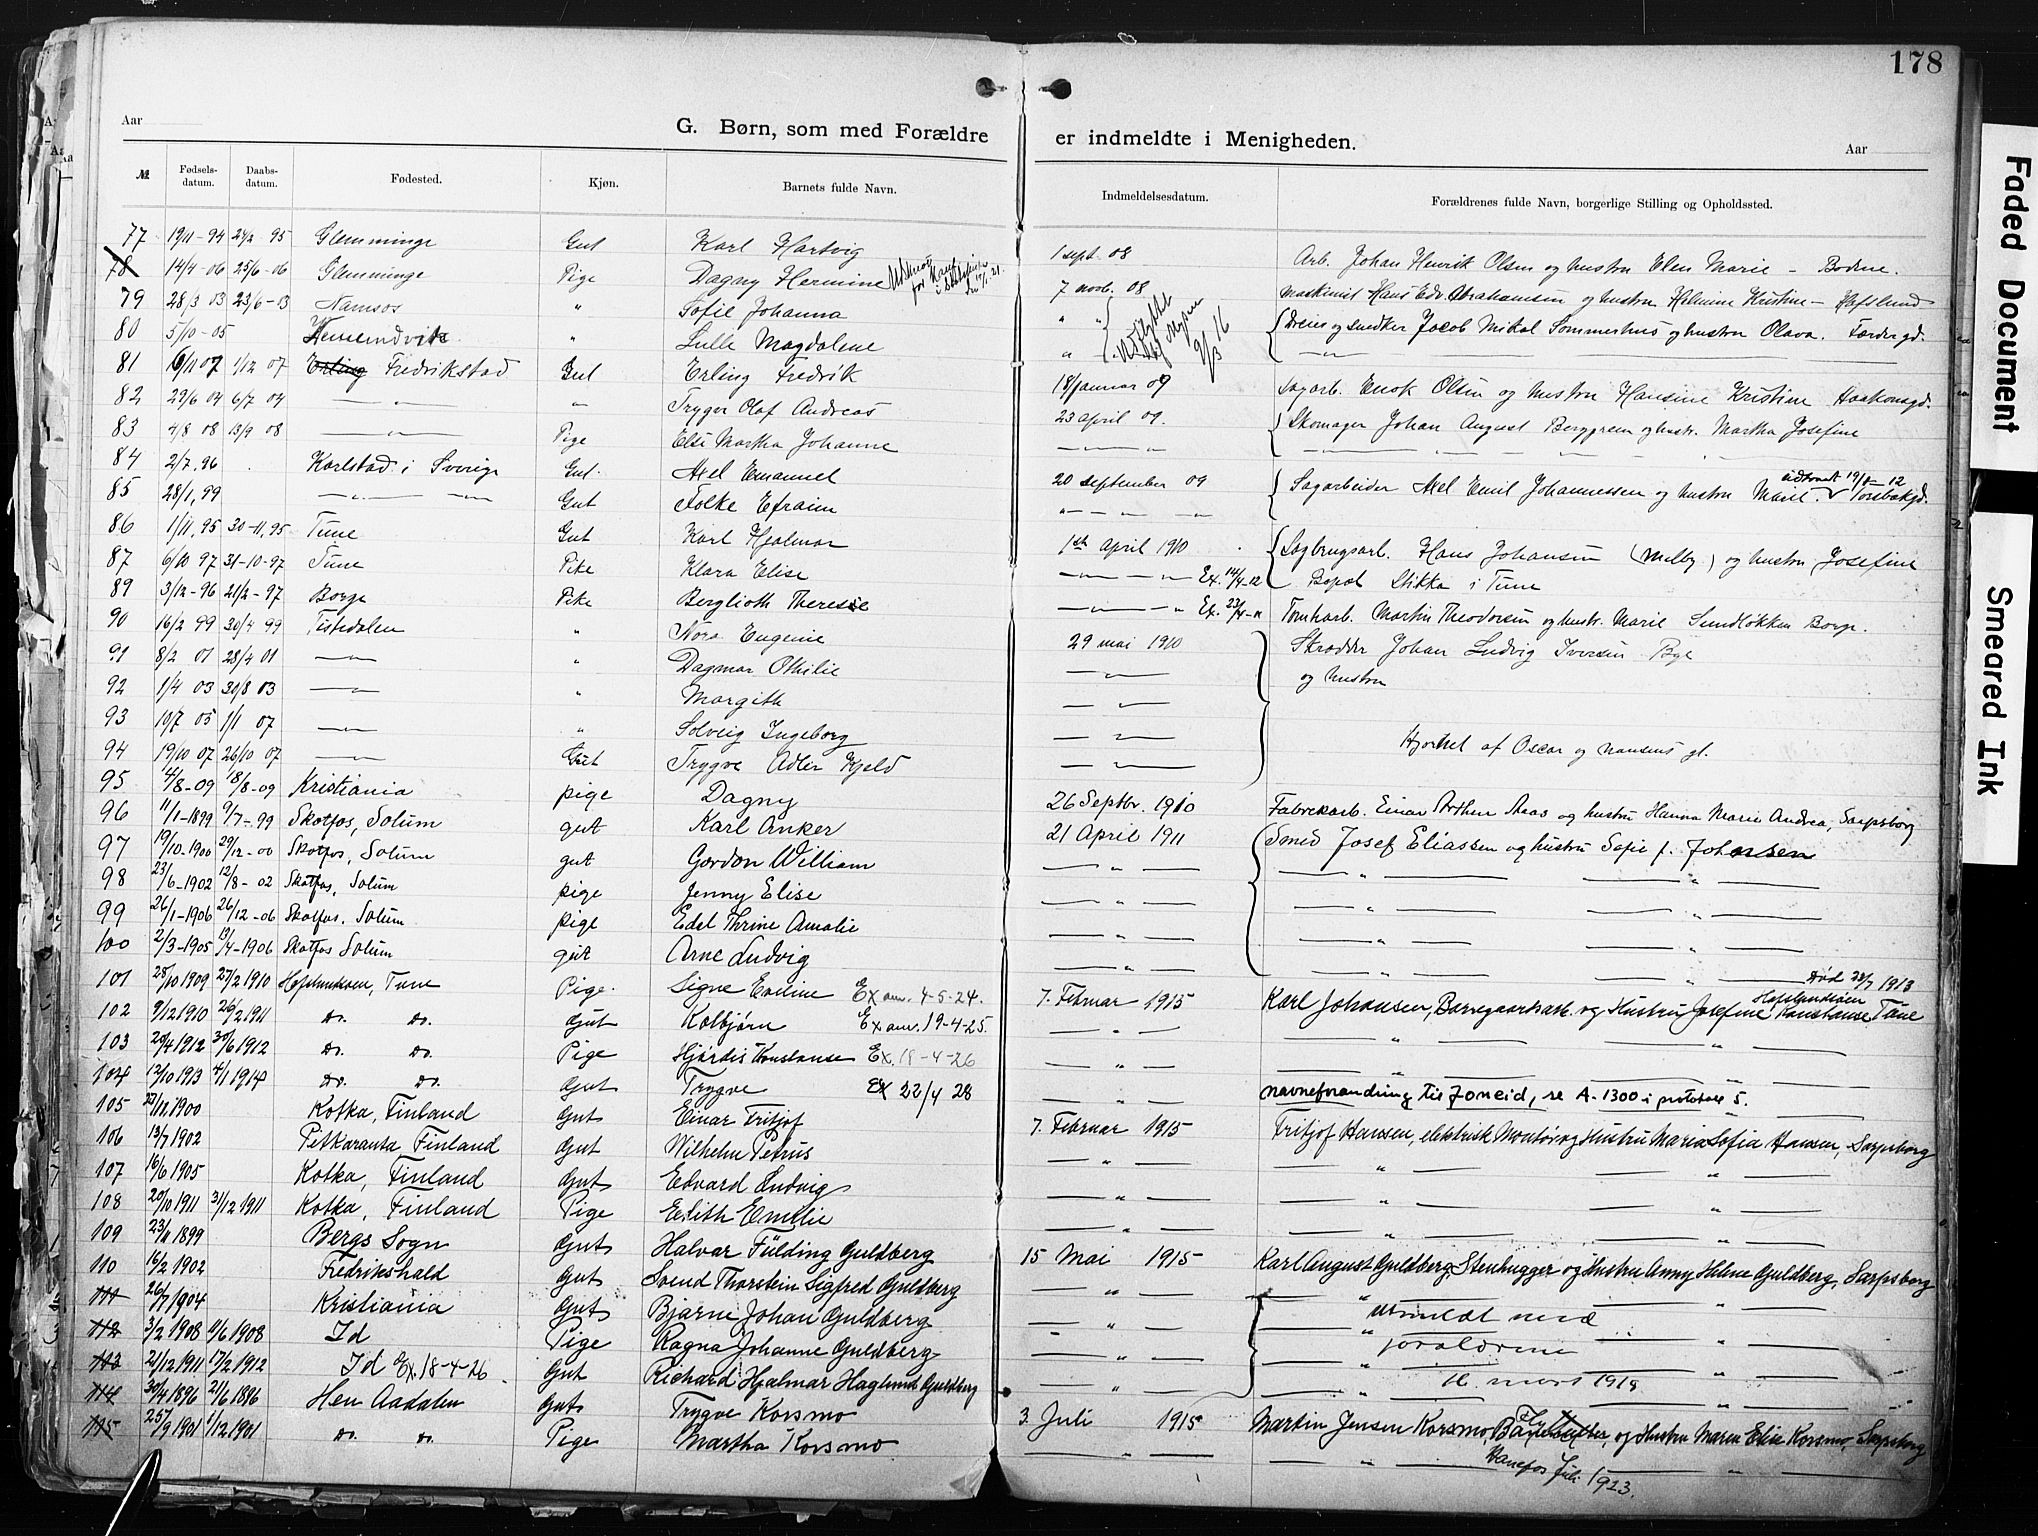 178
Aar
G. Børn, som med Forældre er indmeldte i Menigheden.
Aar
№ Fødsels-datum. Daabs-datum. Fødested. Kjøn. Barnets fulde Navn. Indmeldelsesdatum. Forældrenes fulde Navn, borgerlige Stilling og Opholdssted.
77 19/11-94 24/2 95 Glemminge Gut Karl Hartvig 1 sept. 08 Arb. Johan Henrik Olsen og hustru Elen Marie - Bodene.
78 14/4-06 25/6-06 Glemminge Pige Dagny Hermine 7 novb. 08 Maskinist Hans Edv. Abrahamsen og hustru Helmine Kristine - Hafslund
79 28/3 03 23/6-03 Namsos " Sofie Johanna " " Dreier og snedker Jacob Mikal Sommerhus og hustru Olava. Færdergd.
80 5/10-05 " Lulle Magdalene " 9/3 16
81 6/11 07 1/12 07 Erling Fredrikstad Gut Erling Fredrik 18 januar 09 Sagarb. Enok Olsen og hustru Hansine Kristine Haakonsgd.
82 23/6 04 6/7 04 — " — " Trygve Olaf Andreas 23 april 09. Skomager Johan August Berggreen og hustr. Martha Josefine
83 4/8 08 13/9 08 — " — Pige Else Martha Johanne
84 2/7.96 Karlstad i Sverige Gut. Axel Emanuel 20 september 09 Sagarbeider Axel Emil Johannessen og hustru Marie. Torsbakgd. udtraadt 19/8-12
85 28/1,99 — " — — " — Gut Folke Efraim " — " — " —
86 1/11,95 30-11,95 Tune Gut Karl Hjalmar 1st April 1910 Sagbrugsarb. Hans Johansen (Melby) og hustru Josefine
87 6/10 97 31-10-97 Tune Pike Klara Elise — " — " — " Ex. 14/4-12 Bopæl Stikka i Tune
89 3/12-96 21/2-97 Borge Pike Bergljoth Therese — " — — " Ex. 23/4-11 Tomtarb. Martin Theodorsen og hustr. Marie Sundløkken Borge.
90 16/2 99 30/4 99 Tistedalen " Nora Eugenie 29 mai 1910 Skrædder Johan Ludvig Iversen Bye
91 8/2 01 28/4 01 — " — " Dagmar Othilie — " — og hustru
92 1/4 03 30/8 03 — " — " Margith — " —
93 10/7 05 1/1 07 — " — " Solveig Ingeborg — " — Hjørnet af Oscar og Nansens gt.
94 19/10 07 26/10 07 — " — Gut Trygve Adler Kjeld — " —
95 4/8-09 18/8-09 Kristiania pige Dagny 26 Septbr. 1910 Fabrikarb. Einar Arthur Aaas og hustru Hanna Marie Andrea, Sarpsborg
96 11/1-1899 9/7-99 Skotfos, Solum gut Karl Anker 21 April 1911 Smed Josef Eliassen og hustru Sofie f. Johansen
97 19/10-1900 29/12-00 Skotfos, Solum gut Gordon William — " —
98 23/6-1902 12/8-02 Skotfos, Solum pige Jenny Elise — " —
99 26/1-1906 26/12-06 Skotfos, Solum pige Edel Thrine Amalie — " —
100 2/3-1905 13/4-1906 Skotfos Solum gut Arne Ludvig — " —
101 28/10 1909 27/2 1910 Hafslundsøen, Tune Pige. Signe Eveline Ex am. 4-5-24. 7. Februar 1915 Karl Johansen, Borregaardsarb. og Hustru Josefine Konstanse Hafslundsøen Tune Død 28/7 1913
102 9/12 1910 26/2 1911 Do. Do. Gut Kolbjørn Ex am. 19-4-25. — " —
103 20/4 1912 30/6 1912 Do. Do. Pige Hjørdis Konstanse Ex. 18-4-26 — " —
104 12/10 1913 4/1 1914 Do. Do. Gut Trygve Ex 22/4 28 — " — navneforandring til Joneid, se A-1300 i protokoll 5.
105 27/11 1900 Kotka, Finland Gut Einar Fritjof 7. Februar 1915 Fritjof Hansen, elektrisk Montør og Hustru Maria Sofia Hansen, Sarpsborg
106 13/7 1902 Petkaranta, Finland Gut Wilhelm Petrus — " —
107 16/6 1905 Kotka, Finland Gut Edvard Ludvig — " —
108 20/10 1911 31/12 1911 Kotka, Finland Pige Edith Emilie — " —
109 23/11 1899 Bergs Sogn Gut Halvar Fülding Guldberg 15 Mai 1915 Karl August Guldberg, Stenhugger og Hustru Anny Helene Guldberg, Sarpsborg
110 16/2 1902 Fredrikshald Gut Svend Thorstein Sigfred Guldberg — " —
111 26/7 1904 Kristiania Gut Bjarne Johan Guldberg — " — utmeldt med
112 3/2 1908 11/6 1908 Id Pige Ragna Johanne Guldberg — " — forældrene
113 21/12 1911 17/2 1912 Id Ex. 18-4-26 Gut Richard Hjalmar Haglund Guldberg — " — 16. mars 1918
114 30/4 1896 21/6 1896 Hen Aadalen Gut Trygve Korsmo 3 Juli 1915 Martin Jensen Korsmo, og Hustru Maren Elise Korsmo, Sarpsborg
115 25/9 1901 1/12 1901 Do. Do. Pige Martha Korsmo — " — Hanefos Juli 1923.
Faded Document
Smeared Ink